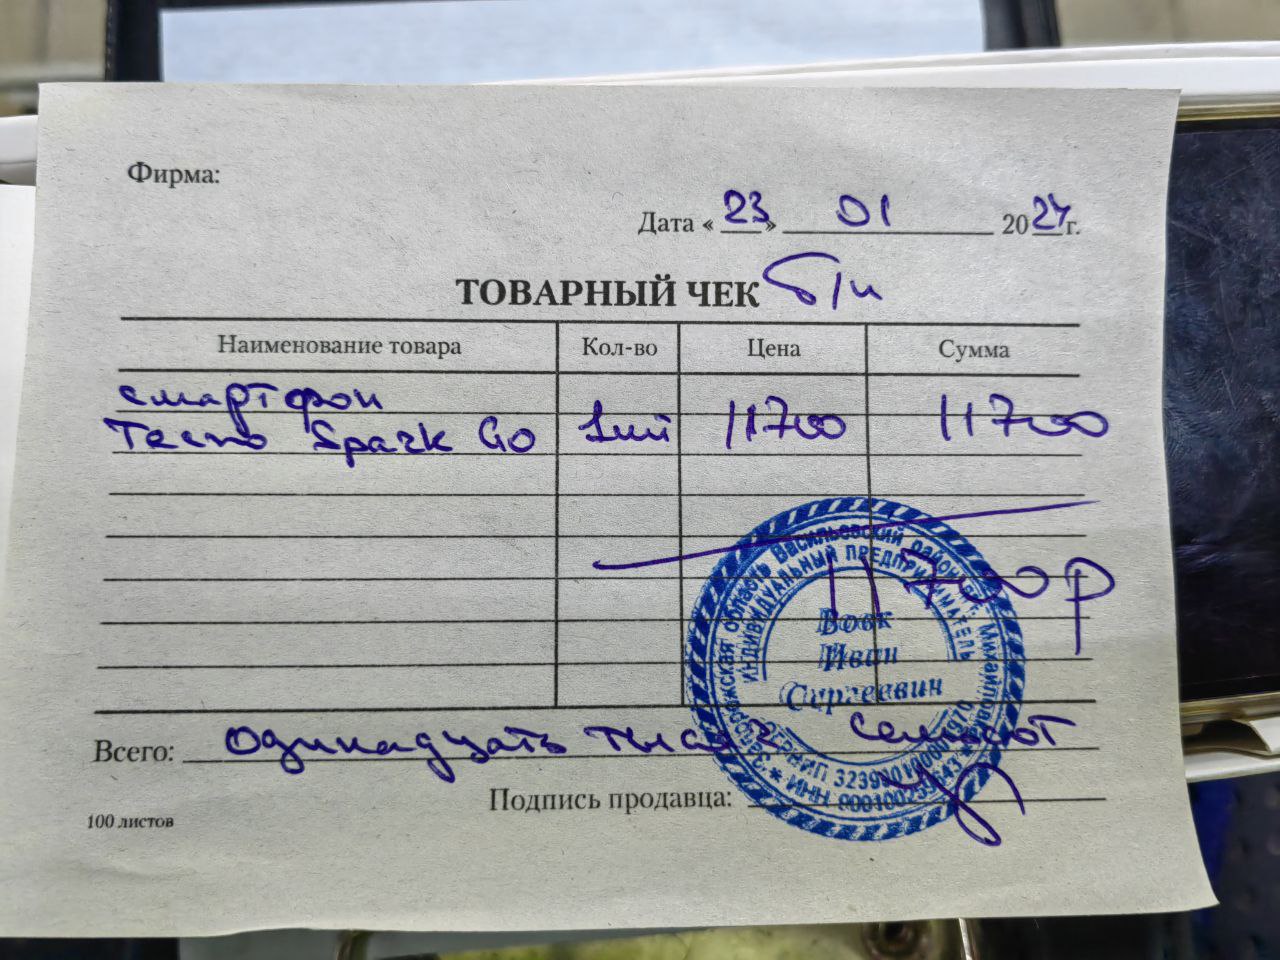 Фирма:
Дата « 23 » 01 2024 г.
ТОВАРНЫЙ ЧЕК б/н
Наименование товара Кол-во Цена Сумма
смартфон
Tecno Spark Go 1шт 11700 11700
11700р
Запорожская область Васильевский район Михайловка
ИНДИВИДУАЛЬНЫЙ ПРЕДПРИНИМАТЕЛЬ
Вовк
Иван
Сергеевич
ОГРНИП
ИНН
Всего: одинадцать тысяч семьсот
Подпись продавца:
100 листов